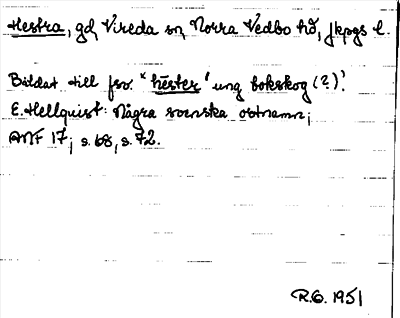 Hestra, gd, Vireda sn, Norra Vedbo hd, Jkpgs l.
Bildat till fsv. "hēster" ung bokskog (?)'.
E. Hellquist: Några svenska ortnamn;
ANF 17; s. 68, s. 72.
R.G. 1951